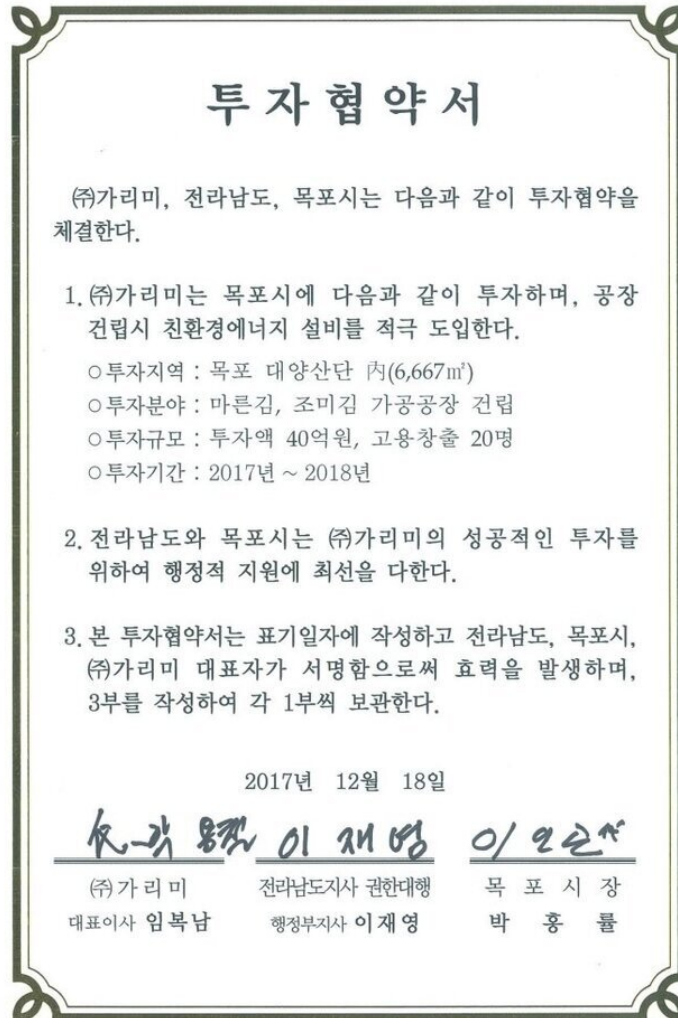 투자협약서
㈜가리미, 전라남도, 목포시는 다음과 같이 투자협약을
체결한다.
1. ㈜가리미는 목포시에 다음과 같이 투자하며, 공장
건립시 친환경에너지 설비를 적극 도입한다.
○투자지역 : 목포 대양산단 內(6,667㎡)
○투자분야 : 마른김, 조미김 가공공장 건립
○투자규모 : 투자액 40억원, 고용창출 20명
○투자기간 : 2017년 ~ 2018년
2. 전라남도와 목포시는 ㈜가리미의 성공적인 투자를
위하여 행정적 지원에 최선을 다한다.
3. 본 투자협약서는 표기일자에 작성하고 전라남도, 목포시,
㈜가리미 대표자가 서명함으로써 효력을 발생하며,
3부를 작성하여 각 1부씩 보관한다.
2017년 12월 18일
이재영
㈜가리미 전라남도지사 권한대행 목포시장
대표이사 임복남 행정부지사 이재영 박홍률